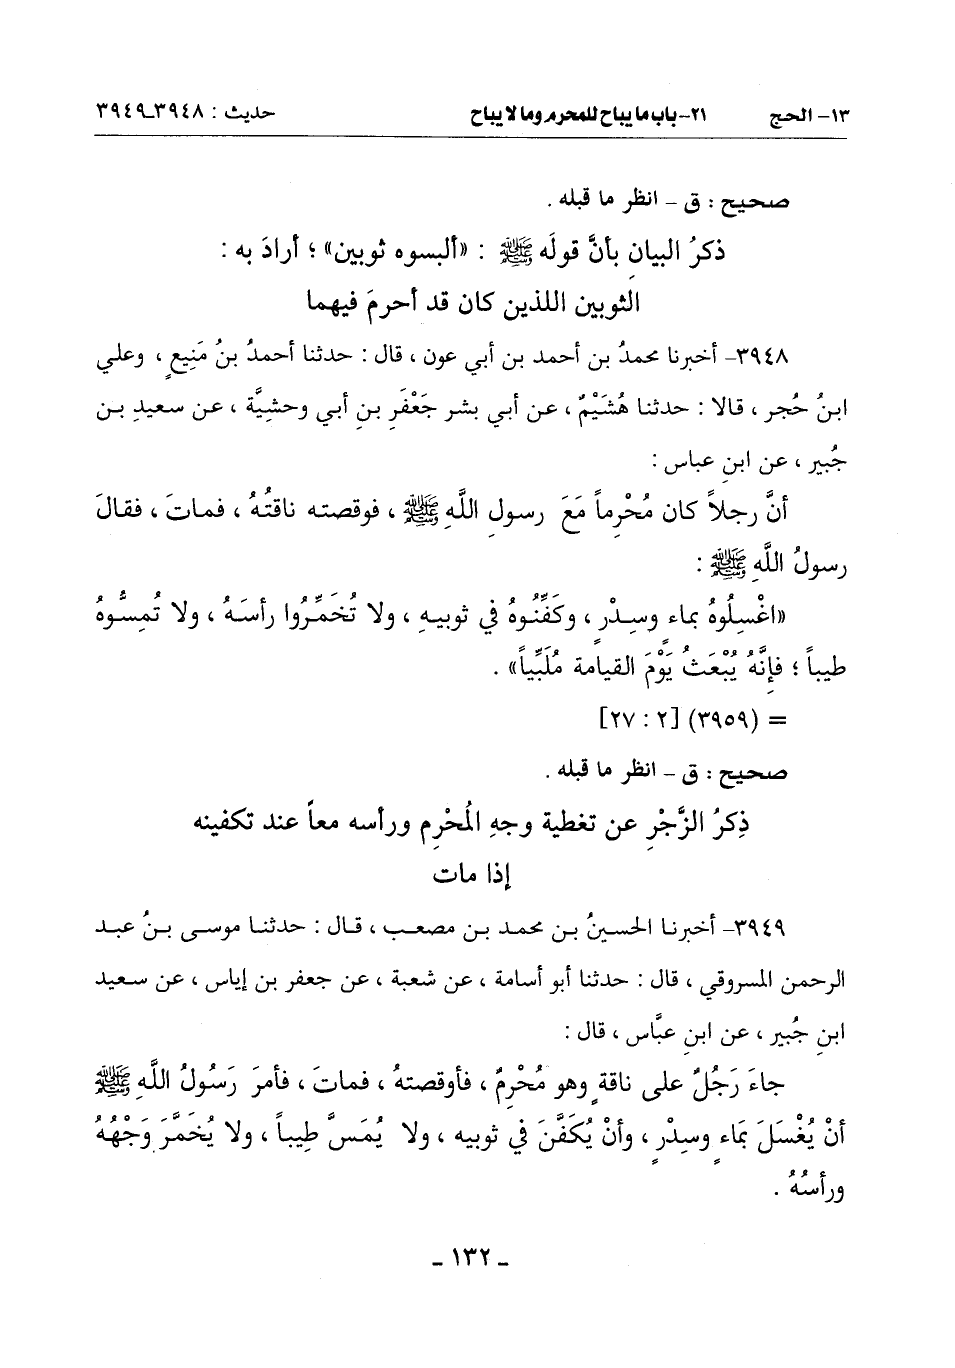 ١٣- الحج ٢١- باب ما يباح للمحرم وما لا يباح حديث : ٣٩٤٨-٣٩٤٩
صحيح : ق - انظر ما قبله .
ذكرُ البيانِ بأنَّ قولَه ﷺ : «ألبسوه ثوبين» ؛ أرادَ به :
الثوبين اللذين كان قد أحرمَ فيهما
٣٩٤٨- أخبرنا محمدُ بن أحمد بن أبي عون ، قال : حدثنا أحمدُ بنُ مَنِيعٍ ، وعلي
ابنُ حُجر ، قالا : حدثنا هُشَيْمٌ ، عن أبي بشر جَعْفَرِ بنِ أبي وحشيَّة ، عن سعيدِ بـن
جُبير ، عن ابنِ عباس :
أنَّ رجلاً كان مُحْرِماً مَعَ رسولِ اللَّهِ ﷺ ، فوقصته ناقتُهُ ، فماتَ ، فقالَ
رسولُ اللَّهِ ﷺ :
«اغْسِلُوهُ بماءٍ وسِدْرٍ ، وكَفِّنُوهُ في ثوبيهِ ، ولا تُخَمِّرُوا رأسَهُ ، ولا تُمِسُّوهُ
طيباً ؛ فإنَّهُ يُبْعَثُ يَوْمَ القيامةِ مُلَبِّياً» .
= (٣٩٥٩) [٢ : ٢٧]
صحيح : ق - انظر ما قبله .
ذِكرُ الزَّجْرِ عن تغطية وجهِ المُحْرِمِ ورأسه معاً عند تكفينه
إذا مات
٣٩٤٩- أخبرنا الحسينُ بن محمد بن مصعب ، قال : حدثنا موسى بنُ عبد
الرحمن المسروقي ، قال : حدثنا أبو أسامة ، عن شعبة ، عن جعفر بن إياس ، عن سعيد
ابنِ جُبير ، عن ابنِ عبَّاس ، قال :
جاءَ رَجُلٌ على ناقةٍ وهو مُحْرِمٌ ، فأوقصتهُ ، فماتَ ، فأمرَ رَسُولُ اللَّهِ ﷺ
أنْ يُغْسَلَ بماءٍ وسِدْرٍ ، وأنْ يُكَفَّنَ في ثوبيه ، ولا يُمَسَّ طِيباً ، ولا يُخَمَّرَ وَجْهُهُ
ورأسُهُ .
- ١٣٢ -